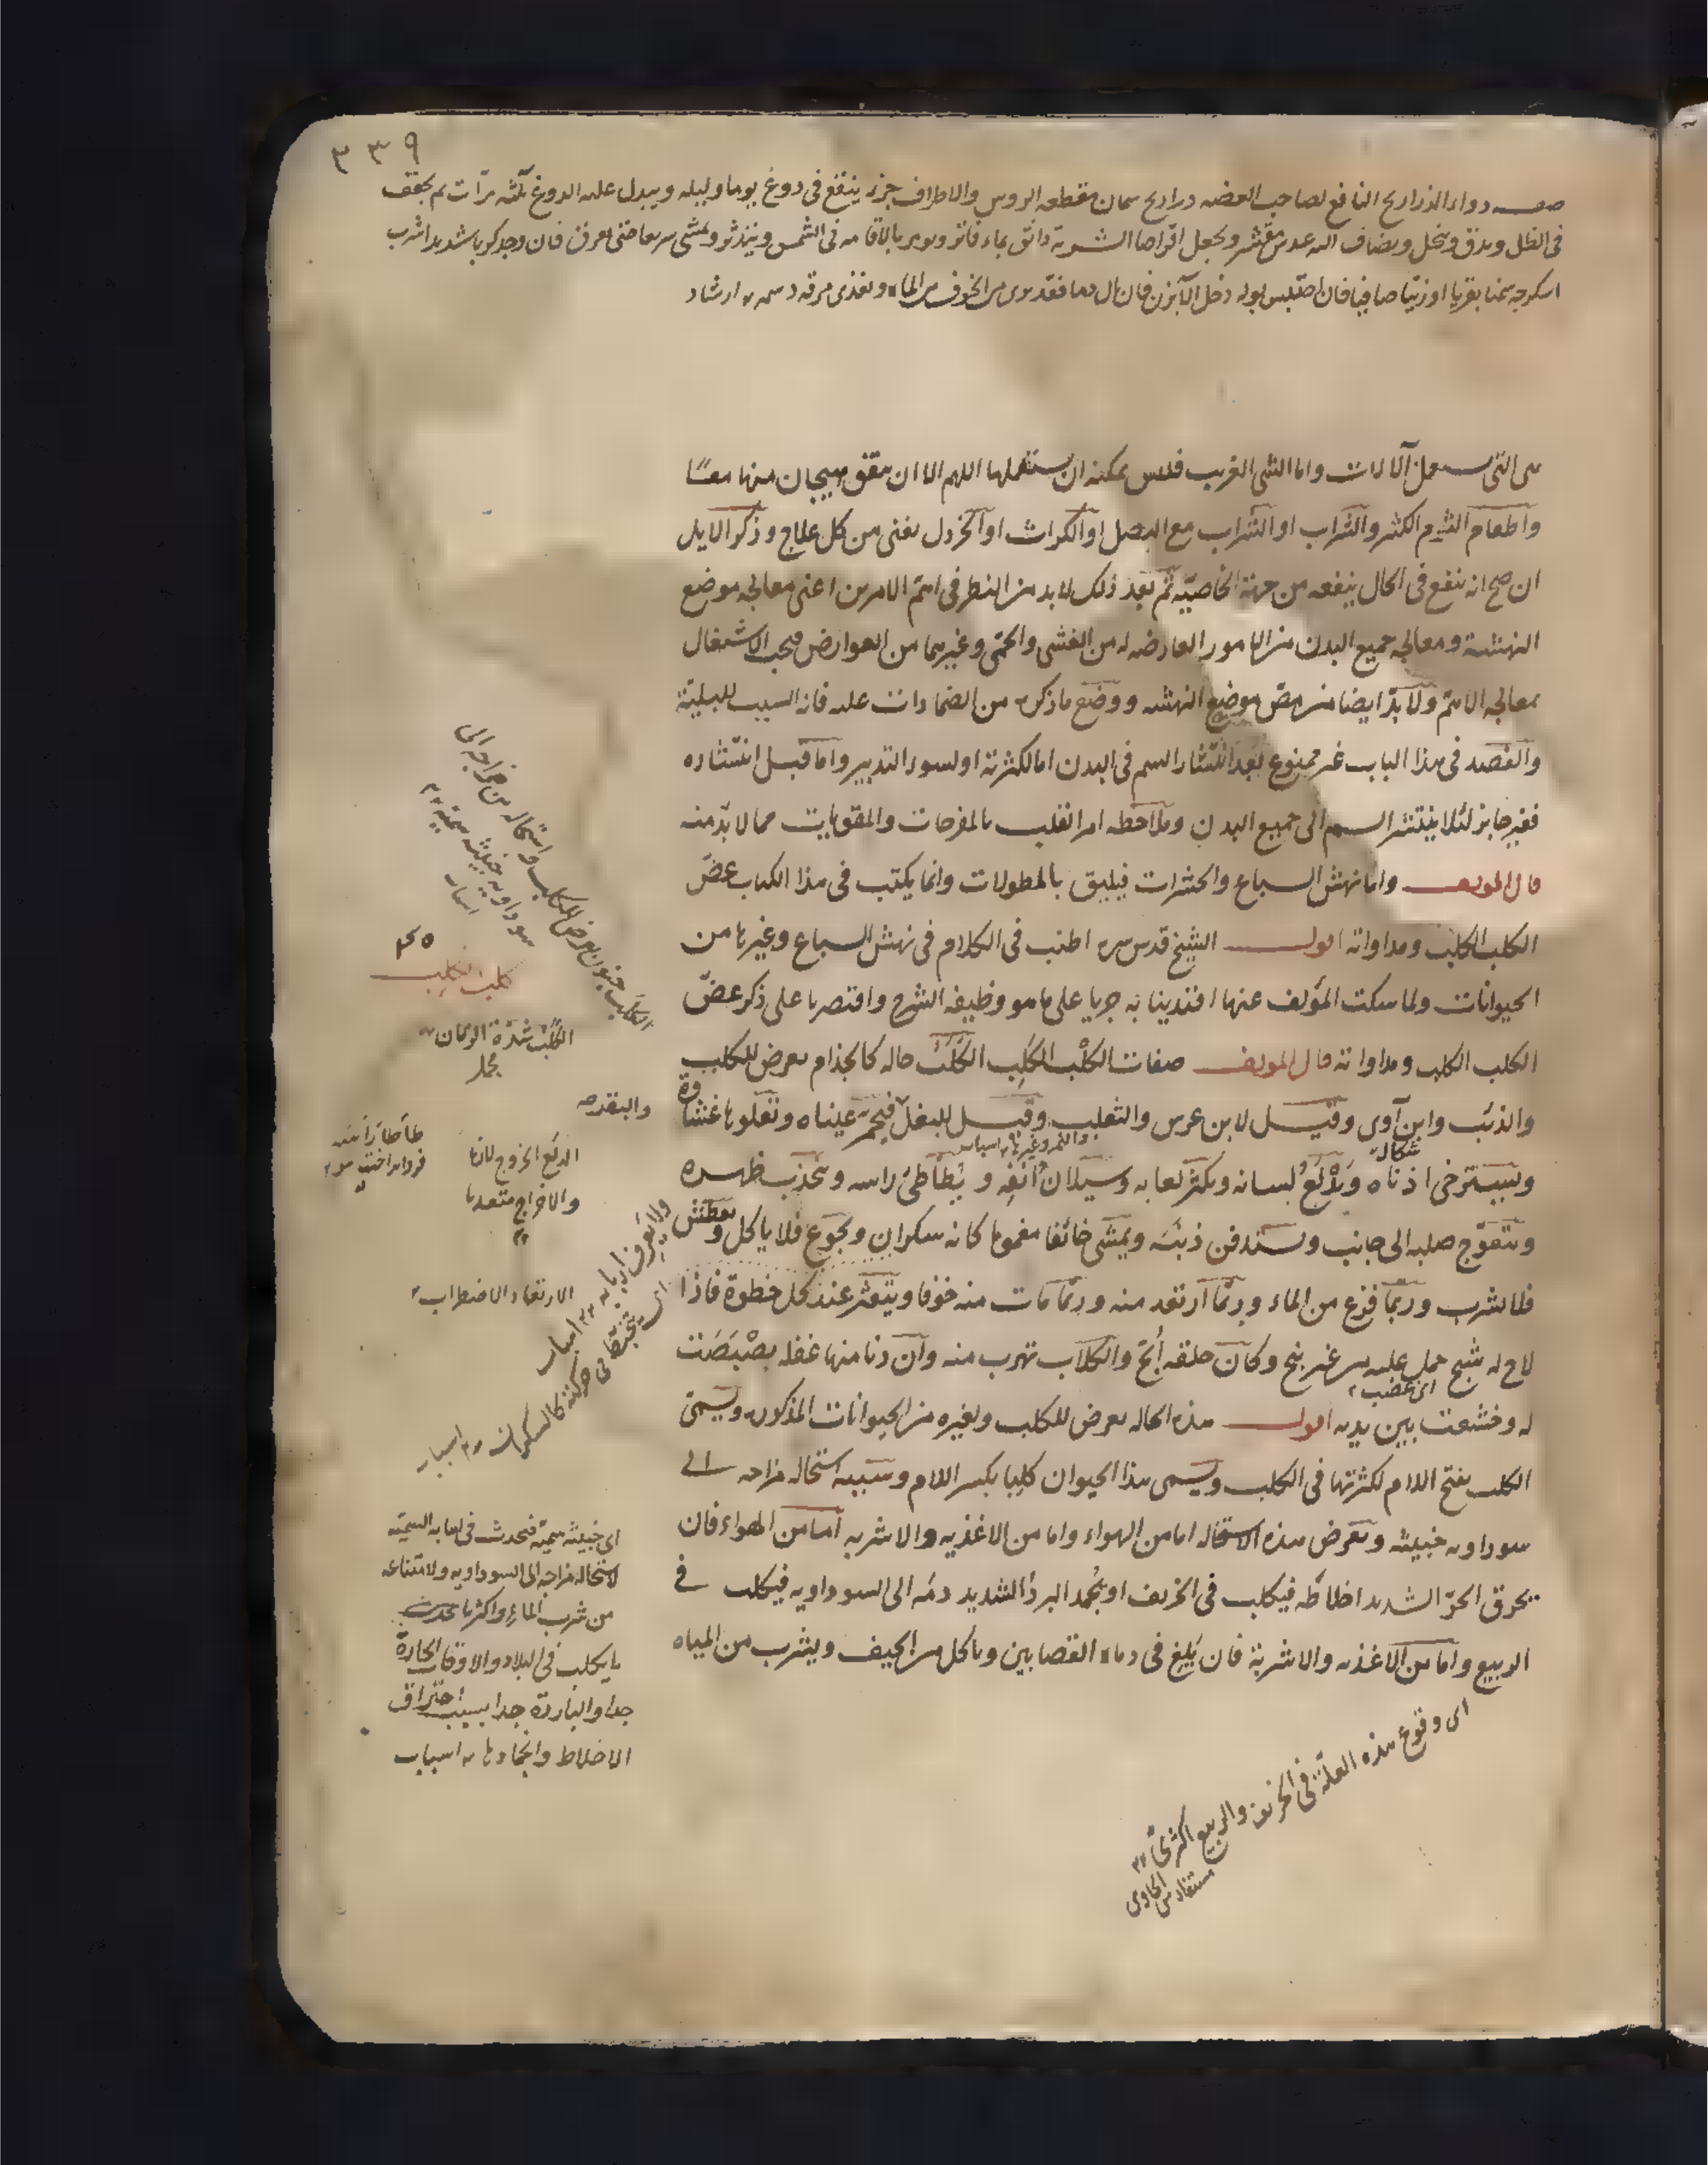 ٣٣٩
صفـــة دواء الذراريح النافع لصاحب العضه ذراريح سمان مقطعه الروس والاطراف جزء ينقع فى دوغ يوما وليله ويبدل عليه الدوغ ثلثه مرّات ثم يجفف
فى الظل ويدق وينخل ويضاف اليه عدس مقشر ويجعل اقراصا الشربة دانق بماء فاتر ويومر بالاقامه فى الشمس ويتدثر ويمشى سريعا حتى يعرق فان وجد كربا شديدا شرب
اسكرجه سمنا بقريا او زيتا صافيا فان احتبس بوله دخل الآبزن فان بال دما فقد برى من الخوف من الماء ويغذى مرقه دسمه ارشاد
هى التى يستعمل الآلات واما الشى الغريب فليس يمكنه ان يستعملها اللهم الا ان يتفق هيجان منها معًا
واطعام الثوم الكثير والشراب او الشراب مع البصل او الكراث او الخردل يغنى من كل علاج وذكر الايل
ان صح انه ينفع فى الحال ينفعه من جهة الخاصيّه ثم بعد ذلك لا بد من النظر فى اهمّ الامرين اعنى معالجه موضع
النهشة ومعالجه جميع البدن من الامور العارضه له من الغشى والحمّى وغيرهما من العوارض فيجب الاشتغال
بمعالجه الاهمّ ولا بدّ ايضا من مصّ موضع النهشه ووضع ما ذكره من الضمادات عليه فانه السبب للبليّة
والفصد فى هذا الباب غير ممنوع بعد انتشار السم فى البدن اما لكثرته او لسوء التدبير واما قبل انتشاره
فغير جايز لئلا ينتشر السم الى جميع البدن وملاحظه امر القلب بالمفرحات والمقويات مما لا بدّ منه
قال المولف واما نهش السباع والحشرات فيليق بالمطولات وانما يكتب فى هذا الكتاب عضّ
الكلب الكلب ومداواته اقول الشيخ قدس سره اطنب فى الكلام فى نهش السباع وغيرها من
الحيوانات ولما سكت المؤلف عنها اقتدينا به جريا على ما هو وظيفه الشرح واقتصرنا على ذكر عضّ
الكلب الكلب ومداواته قال المولف صفات الكلْب الكلِب الكَلَب حاله كالجذام يعرض للكلب
والذئب وابن آوى وقيل لابن عرس والثعلب وقيل للبغل فيحمر عيناه وتعلوها غشاوة
شكال
والنمر وغيرها اسباب
ويسترخى اذناه ويَدْلَعُ لسانه ويكثر لعابه وسيلان انفِه و يُطأطئ راسه ويحدّب ظهره
ويتعوّج صلبه الى جانب ويستدفن ذنبَه ويمشى خائفا مغموما كانه سكران ويجوع فلا ياكل ويعطش
فلا يشرب وربما فزع من الماء وربّما ارتعد منه وربّما مات منه خوفا ويتعثر عند كل خطوة فاذا
لاح له شبح حمل عليه من غير نبح وكان حلقه ابحّ والكلاب تهرب منه وان دنا منها غفله بصْبَصَت
اى غضب
له وخشعت بين يديه اقول هذه الحاله يعرض للكلب ولغيره من الحيوانات المذكوره ويسمّى
الكلب بفتح اللام لكثرتها فى الكلب ويسمى هذا الحيوان كلِبا بكسر اللام وسببه استحاله مزاجه الى
سوداويه خبيثه ويعرض هذه الاستحاله اما من الهواء واما من الاغذيه والاشربه اما من الهواء فان
يحرق الحرّ الشديد اخلاطَه فيكلب فى الخريف او يُجمد البردُ الشديد دمَه الى السوداويه فيكلب فى
الربيع واما من الاغذيه والاشربة فان يَلِغ فى دماء القصابين وياكل من الجيف ويشرب من المياه
الكلَب جنون يعرض للكلب واستحاله من مزاجه الى
سوداويه خبيثه سميّه
اسباب
كلب الكَلِب
الكَلَب شدّة الزمان
مجمل
والبقر
الدلع الخروج لازما
والاخراج متعديا
طأطأ رأسَه
فرو انداختن سر
ولا يعرف اربابه اسباب
الارتعاد الاضطراب
اى يتخبّط فى حركته كالسكران اسباب
اى خبيثه سميّه فتحدث فى لعابه السميّه
لاستحاله مزاجه الى السوداويه ولامتناعه
من شرب الماء واكثر ما يحدث
ما يكلب فى البلاد والاوقات الحارّة
جدا والباردة جدا بسبب احتراق
الاخلاط وانجمادها اسباب
اى وقوع هذه العلّة فى الخريف والربيع اكثرىّ
مستفاد من الحاوى